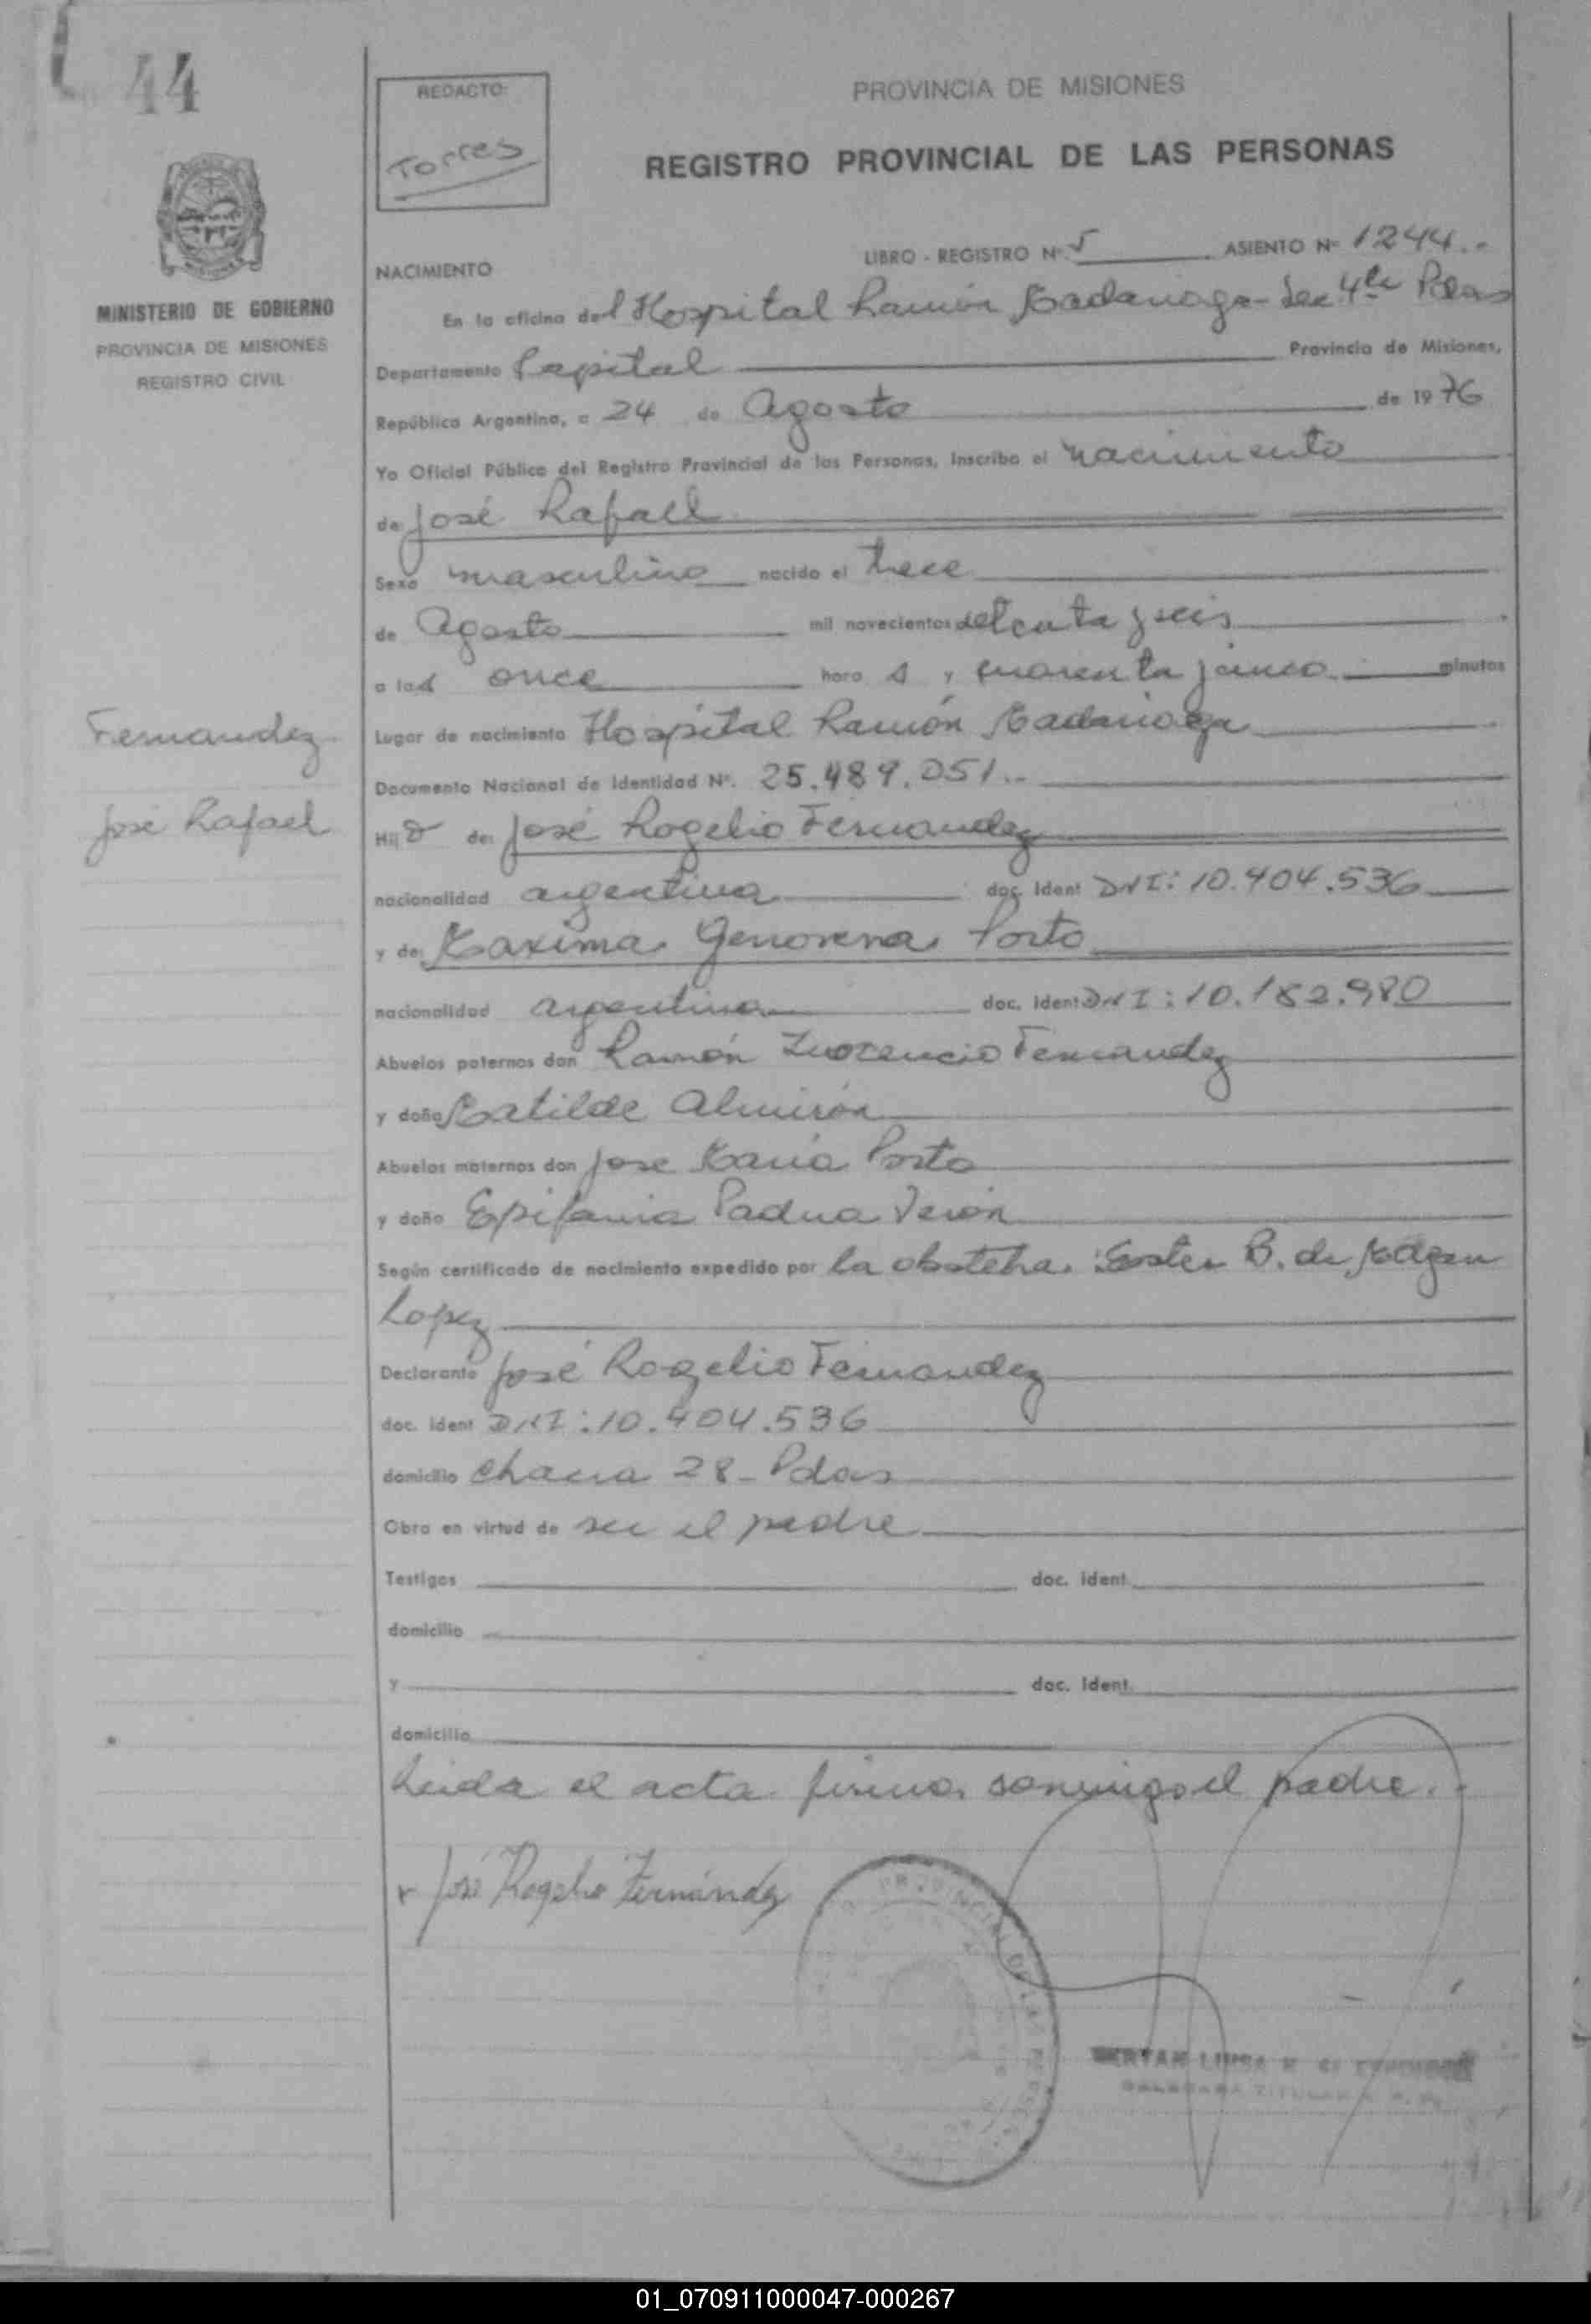 44
REDACTO:
Torres
PROVINCIA DE MISIONES
REGISTRO PROVINCIAL DE LAS PERSONAS
MINISTERIO DE GOBIERNO
PROVINCIA DE MISIONES
REGISTRO CIVIL
LIBRO - REGISTRO Nº 5 ASIENTO Nº 1244.-
NACIMIENTO
En la oficina del Hospital Ramón Madariaga - Sec 4ta Pdas
Departamento Capital Provincia de Misiones,
República Argentina, a 24 de Agosto de 1976
Yo Oficial Público del Registro Provincial de las Personas, Inscribo el nacimiento
de José Rafael
Sexo masculino nacido el trece
de Agosto mil novecientos setenta y seis
a las once hora s y cuarenta y cinco minutos
Fernandez
José Rafael
Lugar de nacimiento Hospital Ramón Madariaga
Documento Nacional de Identidad Nº. 25.489.051.-
Hijo de: José Rogelio Fernandez
nacionalidad argentina doc. Ident DNI: 10.404.536
y de: Maxima Genoveva Porto
nacionalidad argentina doc. Ident DNI: 10.182.980
Abuelos paternos don Ramón Inocencio Fernandez
y doña Matilde Almirón
Abuelos maternos don Jose María Porto
y doña Epifania Padua Verón
Según certificado de nacimiento expedido por la obstetra: Ester B. de
Lopez
Declarante José Rogelio Fernandez
doc. Ident DNI: 10.404.536
domicilio Chacra 28 - Pdas
Obra en virtud de ser el padre
Testigos doc. ident.
domicilio
y doc. Ident.
domicilio
Leida el acta firma conmigo el padre.-
José Rogelio Fernández
01_070911000047-000267